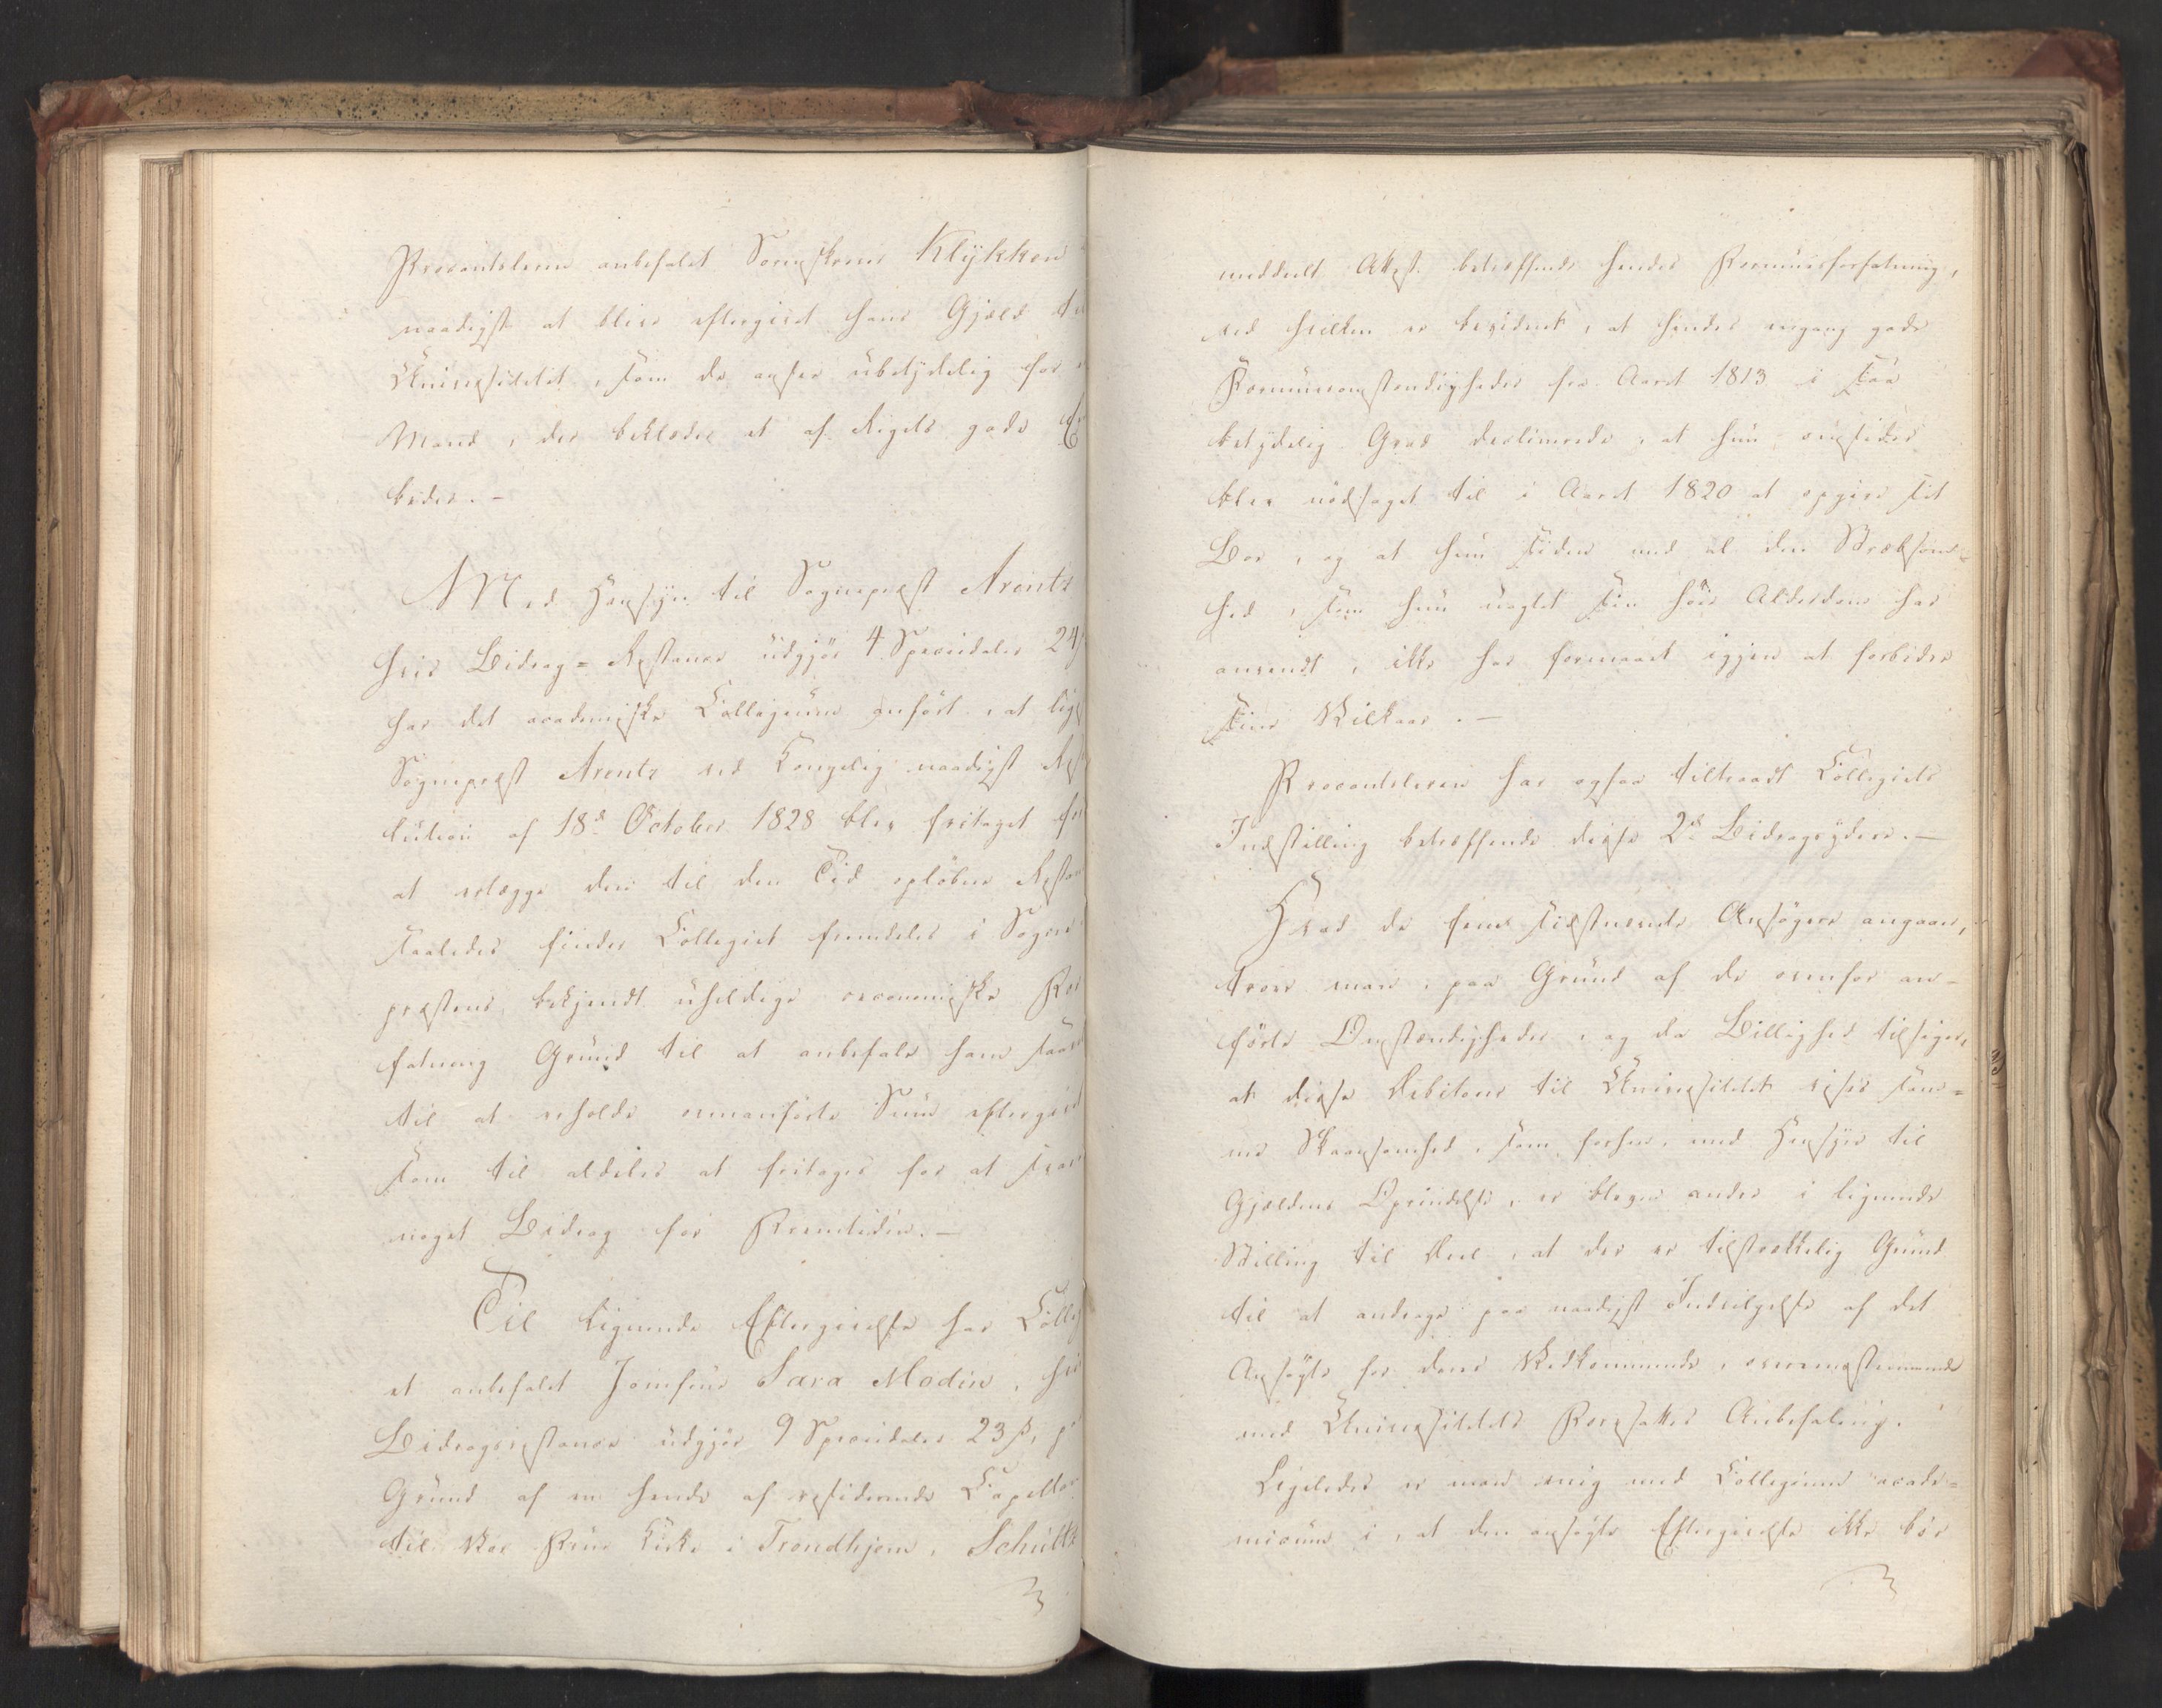 Procantsleren anbefalet Sorenskriver Klykken
naadigst at blive eftergivet hans Gjæld til
Universitetet, som da ansees ubetydelig for
Mand, der beklæder et af Rigets gode E
beder. –
Med Hensyn til Sognepræst Arentz
hvis Bidrag-Restance udgjør 4 Speciedaler 24 ß
har det academiske Collegium anført, at lige
Sognepræst Arentz ved Kongelig naadigst Res
lution af 18de October 1828 blev fritaget for
at erlægge den til den Tid opløbne Restan
saaledes finder Collegiet fremdeles i Sogne
præstens bekjendt uheldige oeconomiske For
fatning Grund til at anbefale ham saavel
til at erholde ommanførte Sum eftergivet
som til aldeles at fritages for at svare
noget Bidrag for Fremtiden. –
Til lignende Eftergivelse har Colleg
et anbefalet Jomfrue Sara Modin, hvis
Bidragsrestance udgjør 9 Speciedaler 23 ß, p
Grund af en hende af residerende Capellan
til Vor Frue Kirke i Trondhjem, Schult
meddeelt Attest betræffende hendes Formuesforfatning,
ved hvilken er bevidnet, at hendes engang gode
Formuesomstændigheder fra Aaret 1813 i saa
betydelig Grad declinerede, at hun omsider
blev nødsaget til i Aaret 1820 at opgive sit
Boe, og at hun siden med al den Stræbsom-
hed, som hun uagtet sin høie Alderdom har
anvendt, ikke har formaaet igjen at forbedre
sine Vilkaar. –
Procantsleren har ogsaa tiltraadt Collegiets
Indstilling betræffende disse 2de Bidragsydere. –
Hvad de fem sidstnævnte Ansøgere angaaer,
troer man, paa Grund af de ovenfor an-
førte Omstændigheder, og da Billighed tilsiger,
at disse Debitorer til Universitetet vises sam-
me Skaansomhed, som forhen, med Hensyn til
Gjældens Oprindelse, er bleven andre i lignende
Stilling til Deel, at der er tilstrækkelig Grund
til at andrage paa naadigst Indvilgelse af det
Ansøgte for deres Vedkommende, overensstemmende
med Universitetets Foresattes Anbefaling.
Ligeledes er man enig med Collegium acade-
micum i, at den ansøgte Eftergivelse ikke bør